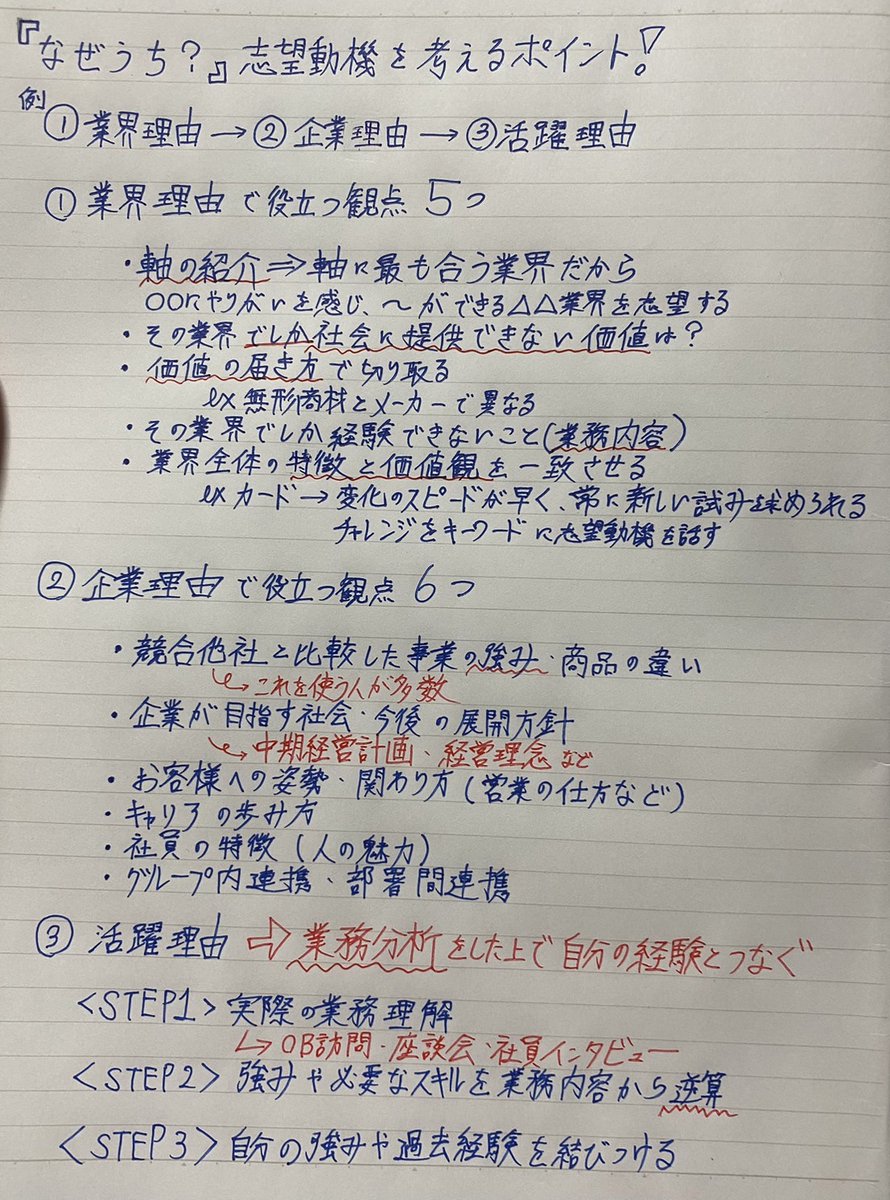 『なぜうち?』志望動機を考えるポイント!
例 ①業界理由→②企業理由→③活躍理由
①業界理由で役立つ観点5つ
・軸の紹介⇒軸に最も合う業界だから
○○にやりがいを感じ、〜ができる△△業界を志望する
・その業界でしか社会に提供できない価値は?
・価値の届き方で切り取る
ex 無形商材とメーカーで異なる
・その業界でしか経験できないこと(業務内容)
・業界全体の特徴と価値観を一致させる
ex カード→変化のスピードが早く、常に新しい試みを求められる
チャレンジをキーワードに志望動機を話す
②企業理由で役立つ観点6つ
・競合他社と比較した事業の強み・商品の違い
↳これを使う人が多数
・企業が目指す社会・今後の展開方針
↳中期経営計画・経営理念など
・お客様への姿勢・関わり方(営業の仕方など)
・キャリアの歩み方
・社員の特徴(人の魅力)
・グループ内連携・部署間連携
③活躍理由⇨業務分析をした上で自分の経験とつなぐ
<STEP1>実際の業務理解
↳OB訪問・座談会・社員インタビュー
<STEP2>強みや必要なスキルを業務内容から逆算
<STEP3>自分の強みや過去経験を結びつける